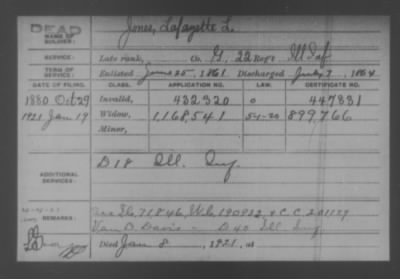 DEAD
NAME OF SOLDIER: Jones, Lafayette L.
SERVICE: Late rank, Co. G, 22 Reg't Ill Inf
TERM OF SERVICE: Enlisted June 25, 1861 Discharged July 7, 1864
DATE OF FILING. CLASS. APPLICATION NO. LAW. CERTIFICATE NO.
1880 Oct 29 Invalid, 432320 447831
1921 Jan 19 Widow, 1168541 899766
Minor,
ADDITIONAL SERVICES: D 18 Ill. Inf.
REMARKS: 71846, 190932, C C 201179
Van D. Davis - D 40 Ill Inf
Died Jan 8, 1921, at